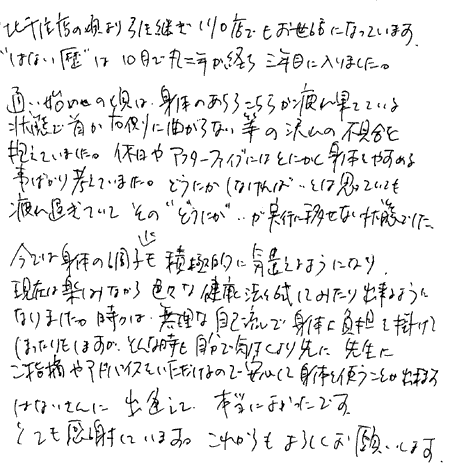 北千住店の頃より引き継ぎ 川口店でもお世話になっています。
"はない歴"は10月で丸二年が経ち 三年目に入りました。
通い始めの頃は、身体のあちらこちらが疲れ果てている
状態で首が右側に曲がらない等の沢山の不具合を
抱えていました。休日やアフターファイブにはとにかく身体を休める
事ばかり考えていました。どうにかしなければ…とは思っていても
疲れ過ぎていて その"どうにか"…が実行に移せない状態でした。
今では身体の調子も積極的に
現在は楽しみながら色々な健康法を試してみたり出来るように
なりました。時には、無理な自己流で身体に負担を掛けて
しまったりもしますが、そんな時も自分で気付くより先に 先生に
ご指摘やアドバイスをいただけるので安心して身体を使うことが出来る
はないさんに 出会えて 本当によかったです。
とても感謝しています。これからもよろしくお願いします。